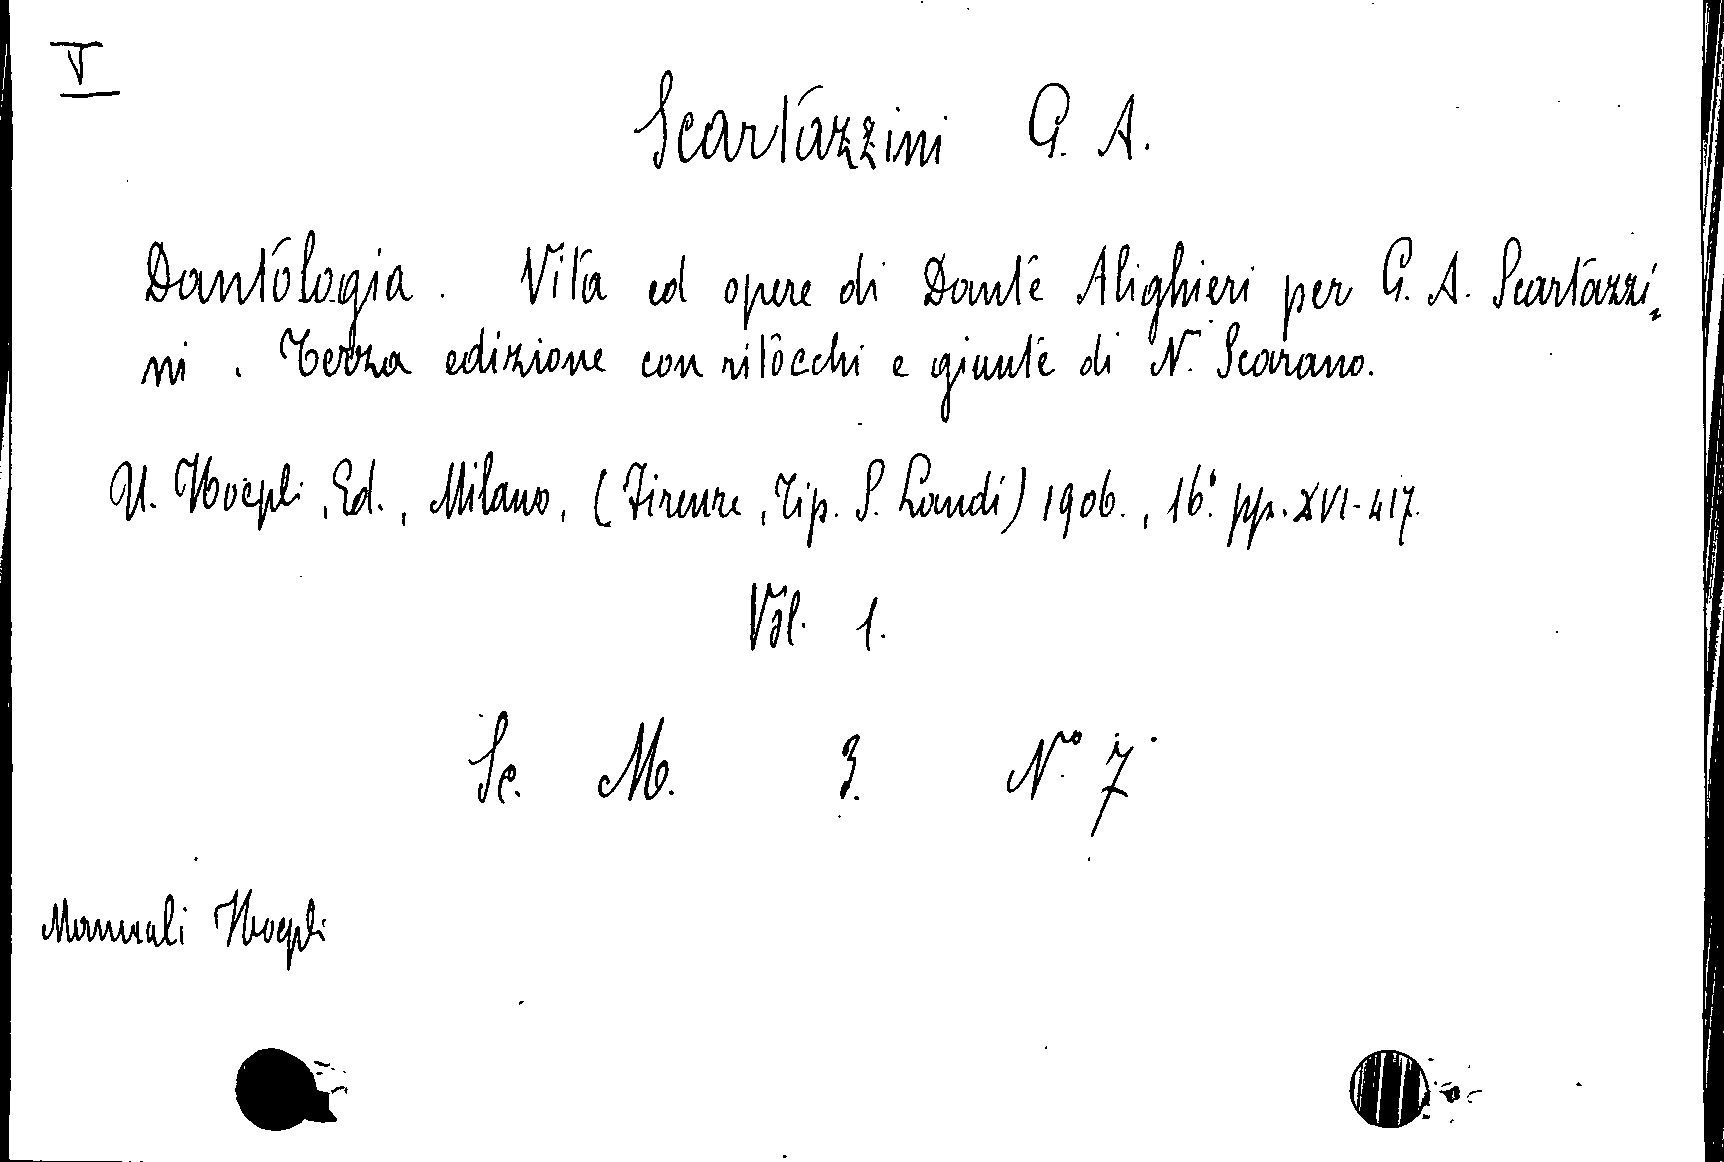 V
Scartazzini G. A.
Dantologia. Vita ed opere di Dante Alighieri per G. A. Scartazzi-
ni. Terza edizione con ritocchi e giunte di N. Scarano.
U. Hoepli, Ed., Milano, (Firenze, Tip. S. Landi) 1906., 16° pp. XVI-417.
Vol. 1.
Sc. M. 3. N° 7
Manuali Hoepli